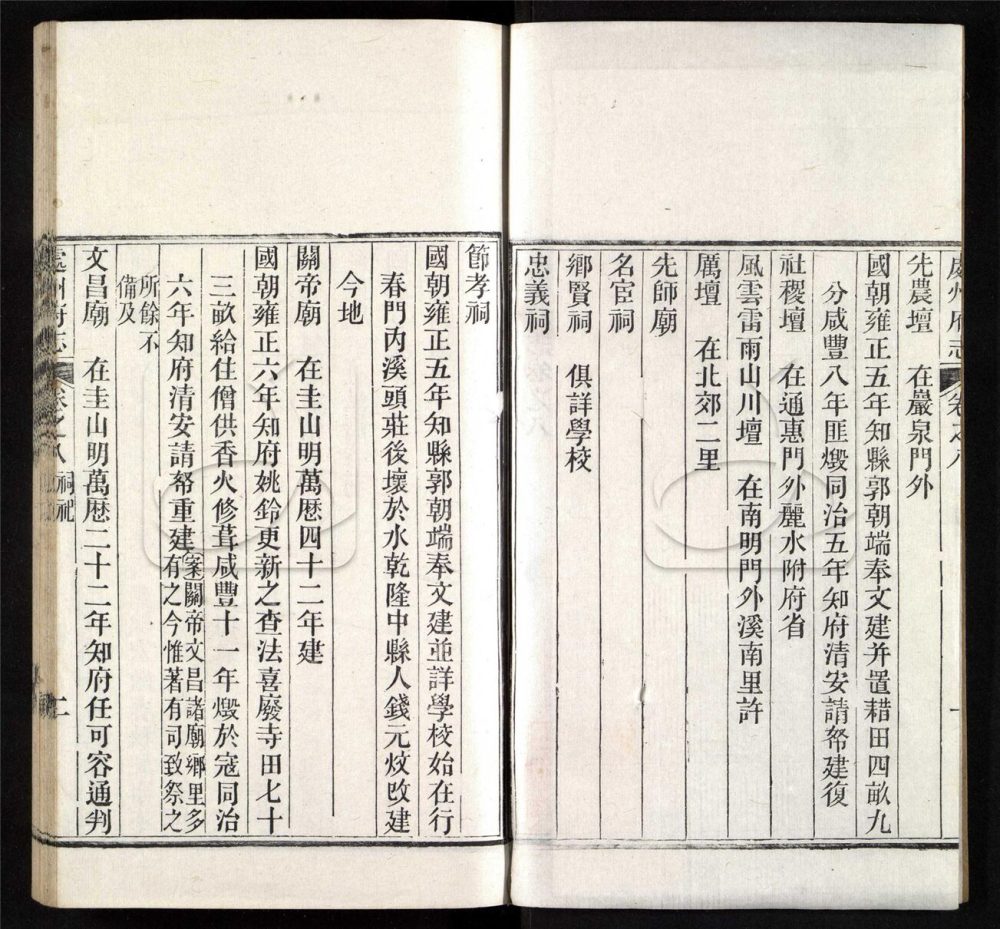 處州府志 卷之八 一
先農壇 在巖泉門外
國朝雍正五年知縣郭朝端奉文建并置耤田四畝九
分咸豐八年匪燬同治五年知府清安請帑建復
社稷壇 在通惠門外麗水附府省
風雲雷雨山川壇 在南明門外溪南里許
厲壇 在北郊二里
先師廟
名宦祠
鄉賢祠 俱詳學校
忠義祠
節孝祠
國朝雍正五年知縣郭朝端奉文建並詳學校始在行
春門內溪頭莊後壞於水乾隆中縣人錢元炆改建
今地
關帝廟 在圭山明萬厯四十二年建
國朝雍正六年知府姚鈴更新之查法喜廢寺田七十
三畝給住僧供香火修葺咸豐十一年燬於寇同治
六年知府清安請帑重建案關帝文昌諸廟鄉里多
有之今惟著有司致祭之
所餘不
備及
文昌廟 在圭山明萬厯二十二年知府任可容通判
處州府志 卷之八 祠祀 二